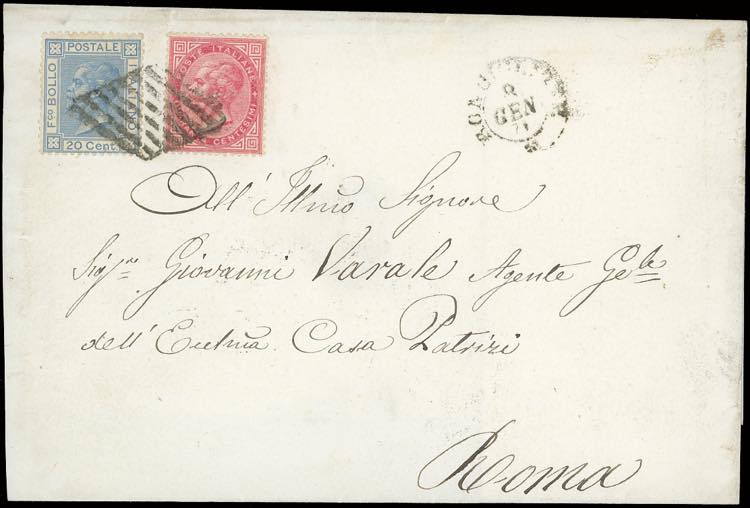 POSTALE
F.co BOLLO
20 Cent.
POSTE ITALIANE
CENTESIMI
8
GEN
71
All' Illmo Signore
Sigre Giovanni Varale Agente Gele
dell' EccLma Casa Patrizi
Roma